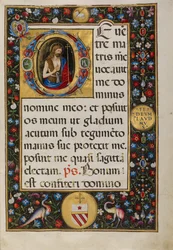 De uē
tre ma
tris meę
uocauit me
dominus
nomine meo: et posuit
os meum ut gladium
acutum sub tegumēto
manus suę protexit me,
posuit me quasi sagittā
electam. ps. Bonum
est confiteri domino